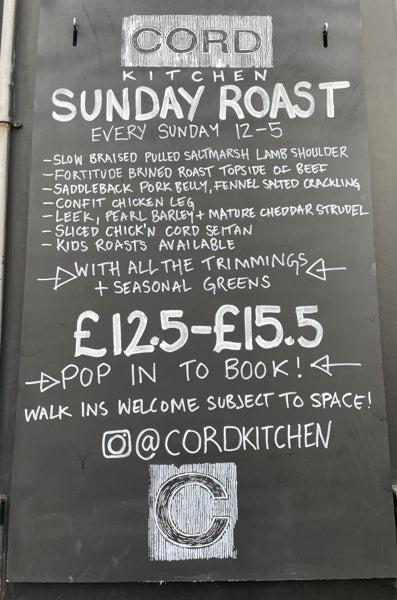 CORD
KITCHEN
SUNDAY ROAST
EVERY SUNDAY 12-5
- SLOW BRAISED PULLED SALTMARSH LAMB SHOULDER
- FORTITUDE BRINED ROAST TOPSIDE OF BEEF
- SADDLEBACK PORK BELLY, FENNEL SALTED CRACKLING
- CONFIT CHICKEN LEG
- LEEK, PEARL BARLEY + MATURE CHEDDAR STRUDEL
- SLICED CHICK'N CORD SEITAN
- KIDS ROASTS AVAILABLE
WITH ALL THE TRIMMINGS
+ SEASONAL GREENS
£12.5-£15.5
POP IN TO BOOK!
WALK INS WELCOME SUBJECT TO SPACE!
@CORDKITCHEN
C